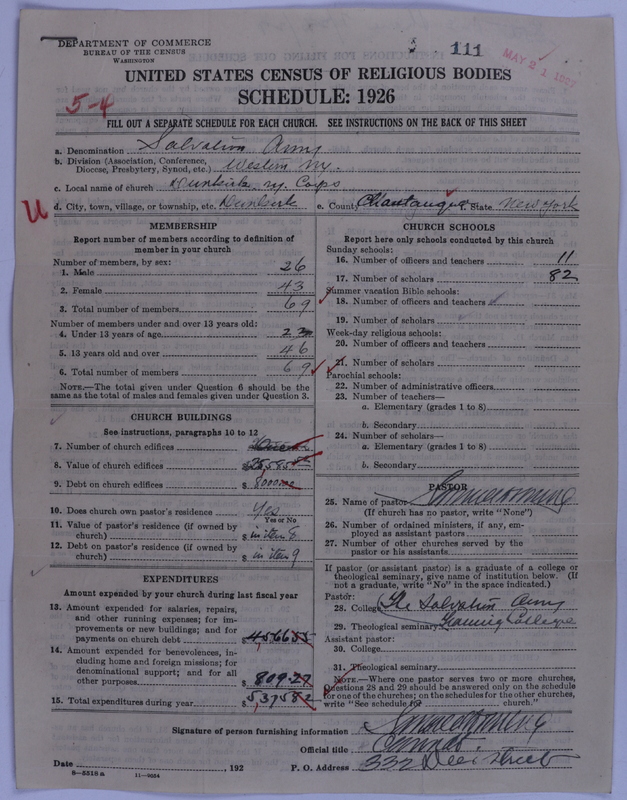 DEPARTMENT OF COMMERCE
BUREAU OF THE CENSUS
WASHINGTON
111
MAY 21 1927
UNITED STATES CENSUS OF RELIGIOUS BODIES
SCHEDULE: 1926
5-4
FILL OUT A SEPARATE SCHEDULE FOR EACH CHURCH. SEE INSTRUCTIONS ON THE BACK OF THIS SHEET
a. Denomination Salvation Army
b. Division (Association, Conference,
Diocese, Presbytery, Synod, etc.) Western NY.
c. Local name of church Dunkirk, NY. Corps
U
d. City, town, village, or township, etc. Dunkirk e. County Chautauqua f. State New York
MEMBERSHIP
Report number of members according to definition of
member in your church
Number of members, by sex:
1. Male 26
2. Female 43
3. Total number of members 69
Number of members under and over 13 years old:
4. Under 13 years of age 23
5. 13 years old and over 46
6. Total number of members 69
NOTE.—The total given under Question 6 should be the
same as the total of males and females given under Question 3.
CHURCH BUILDINGS
See instructions, paragraphs 10 to 12
7. Number of church edifices
8. Value of church edifices $
9. Debt on church edifices $ 8000
10. Does church own pastor's residence Yes
Yes or No
11. Value of pastor's residence (if owned by
church) $ in item 8
12. Debt on pastor's residence (if owned by
church) $ in item 9
EXPENDITURES
Amount expended by your church during last fiscal year
13. Amount expended for salaries, repairs,
and other running expenses; for im-
provements or new buildings; and for
payments on church debt $ 4566 55
14. Amount expended for benevolences, in-
cluding home and foreign missions; for
denominational support; and for all
other purposes $ 809.27
15. Total expenditures during year $ 5375 82
CHURCH SCHOOLS
Report here only schools conducted by this church
Sunday schools:
16. Number of officers and teachers 11
17. Number of scholars 82
Summer vacation Bible schools:
18. Number of officers and teachers
19. Number of scholars
Week-day religious schools:
20. Number of officers and teachers
21. Number of scholars
Parochial schools:
22. Number of administrative officers
23. Number of teachers—
a. Elementary (grades 1 to 8)
b. Secondary
24. Number of scholars—
a. Elementary (grades 1 to 8)
b. Secondary
PASTOR
25. Name of pastor
(If church has no pastor, write "None")
26. Number of ordained ministers, if any, em-
ployed as assistant pastors
27. Number of other churches served by the
pastor or his assistants
If pastor (or assistant pastor) is a graduate of a college or
theological seminary, give name of institution below. (If
not a graduate, write "No" in the space indicated.)
Pastor:
28. College The Salvation Army
29. Theological seminary Training College
Assistant pastor:
30. College
31. Theological seminary
NOTE.—Where one pastor serves two or more churches,
Questions 28 and 29 should be answered only on the schedule
for one of the churches; on the schedules for the other churches,
write "See schedule for church."
Signature of person furnishing information
Official title
Date , 192 P. O. Address 332 Deer Street
8-5318 a 11-9054